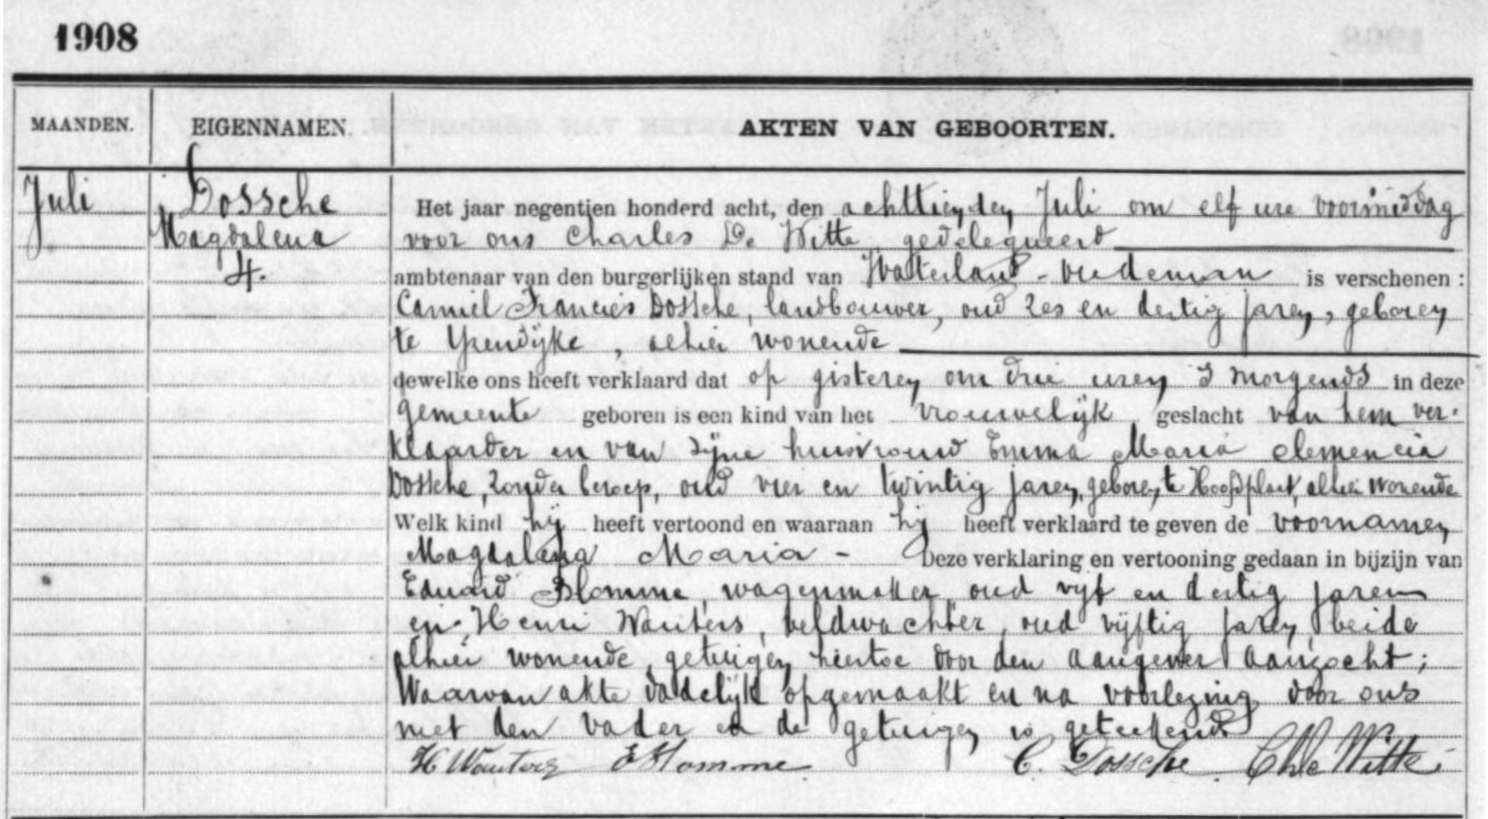 1908
MAANDEN.
EIGENNAMEN.
AKTEN VAN GEBOORTEN.
Juli
Dossche
Magdalena
4.
Het jaar negentien honderd acht, den achttienden Juli om elf ure voormiddag
voor ons Charles De Witte, gedelegueerd
ambtenaar van den burgerlijken stand van Waterland-Oudeman is verschenen :
Camiel Francies Dossche, landbouwer, oud zes en dertig jaren, geboren
te Yzendijke, alhier wonende
dewelke ons heeft verklaard dat op gisteren om drie uren 's morgends in deze
gemeente geboren is een kind van het vrouwelijk geslacht van hem ver-
klaarder en van zijne huisvrouw Emma Maria Clemencia
Dossche, zonder beroep, oud vier en twintig jaren, geboren te Hoofdplaat, alhier wonende
Welk kind hij heeft vertoond en waaraan hij heeft verklaard te geven de voornamen
Magdalena Maria - Deze verklaring en vertooning gedaan in bijzijn van
Eduard Blomme, wagenmaker oud vijf en dertig jaren
en Henri Wauters, veldwachter, oud vijftig jaren, beide
alhier wonende, getuigen hiertoe door den aangever aanzocht ;
Waarvan akte dadelijk opgemaakt en na voorlezing door ons
met den vader en de getuigen is geteekend
H Wauters E Blomme C. Dossche Ch De Witte